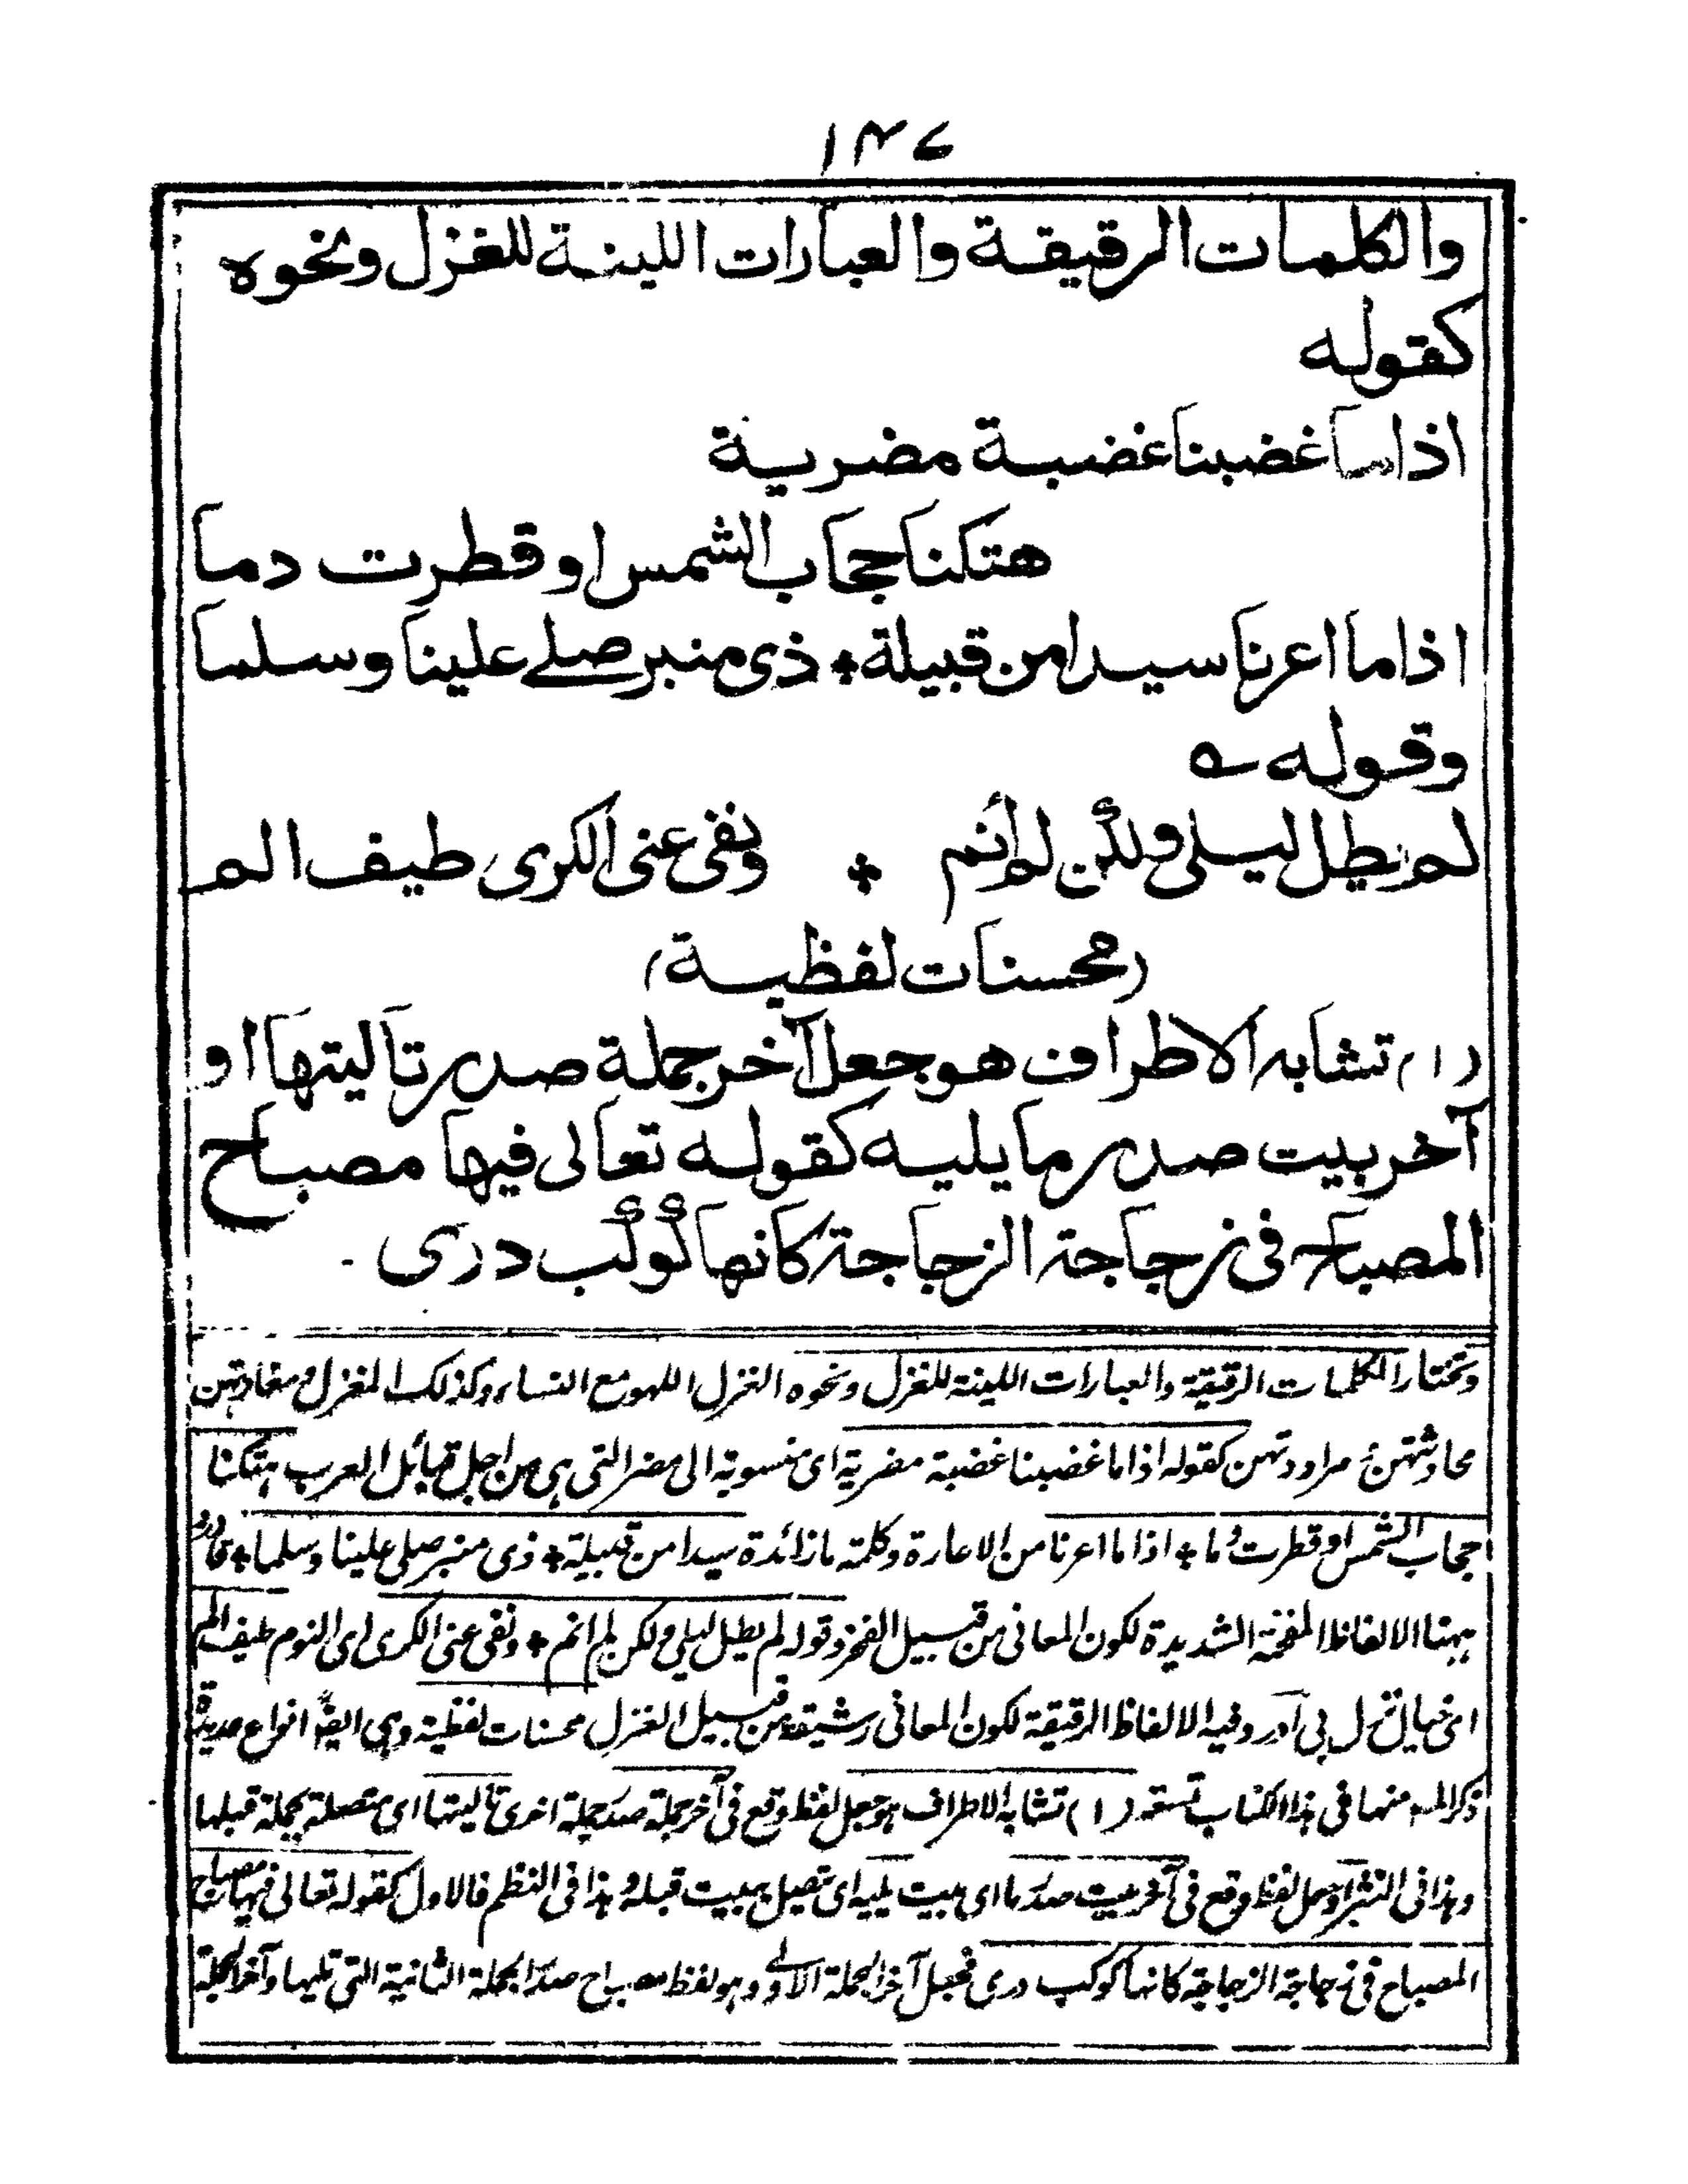 ١٤٧
والكلمات الرقيقة والعبارات اللينة للغزل ونحوه
كقوله
اذا ما غضبنا غضبة مضرية
هتكنا حجاب الشمس او قطرت دما
اذا ما اعرنا سيدا من قبيلة * ذى منبر صلے علينا وسلما
وقوله ؎
لم يطل ليلى ولكن لم أنم * ونفى عنى الكرى طيف الم
(محسنات لفظية)
(١) تشابه الاطراف هو جعل آخر جملة صدر تاليتها او
آخر بيت صدر ما يليه كقوله تعالى فيها مصباح
المصباح فى زجاجة الزجاجة كانها كوكب درى -
وتختار الكلمات الرقيقة والعبارات اللينة للغزل ونحوه الغزل اللهو مع النساء وكذلك المغزل ومغادتهن
محادثتهن ومراودتهن كقوله اذا ما غضبنا غضبة مضرية اى منسوبة الى مضر التى هى من اجل قبائل العرب هتكنا
حجاب الشمس او قطرت دما * اذا ما اعرنا من الاعارة وكلمة ما زائدة سيدا من قبيلة * ذى منبر صلى علينا وسلما *
ههنا الالفاظ المفخمة الشديدة لكون المعانى من قبيل الفخر وقوله لم يطل ليلى ولكن لم انم * ونفى عنى الكرى اى النوم طيف الم
اى خيال نزل بى وفيه الالفاظ الرقيقة لكون المعانى رشيقة من قبيل الغزل محسنات لفظية وهى ايضًا انواع عديدة
ذكر المص منها فى هذا الكتاب تسعة (١) تشابه الاطراف هو جعل لفظ وقع فى آخر جملة صدر جملة اخرى تاليتها اى متصلة بجملة قبلها
وهذا فى النثر او جعل لفظ وقع فى آخر بيت صدر ما اى بيت يليه اى يتصل ببيت قبله وهذا فى النظم فالاول كقوله تعالى فيها مصباح
المصباح فى زجاجة الزجاجة كانها كوكب درى فجعل آخر الجملة الاولى وهو لفظ مصباح صدر الجملة الثانية التى تليها وآخر الجملة